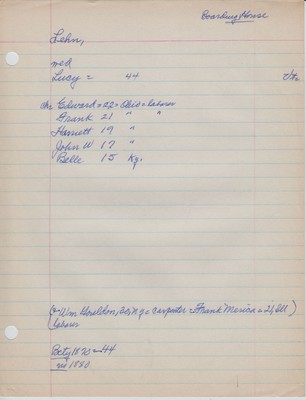 Boarding House
Lehn,
wed
Lucy = 44
ch= Edward = 22 = Ohio = laborer
Frank 21 " "
Harriett 19 "
John W 17 "
Belle 15 Ky.
(Wm 30, N.Y. = carpenter = Frank = 21, Ill)
(laborer
1870 = 44
1880